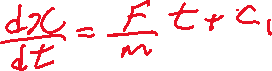 dx/dt = F/m t + C₁